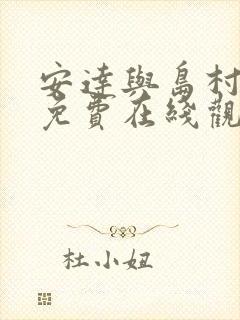 安達與島村
免費在綫觀
杜小妞